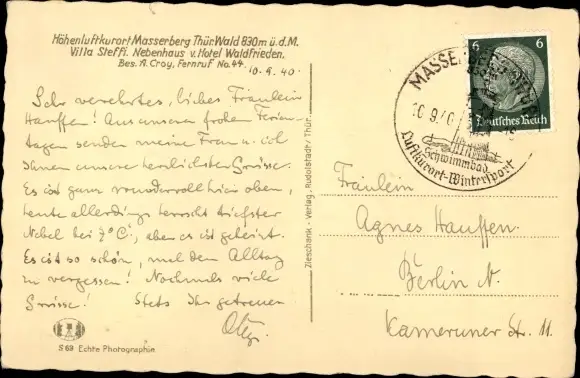 Höhenluftkurort Masserberg Thür.Wald 830m ü.d.M.
Villa Steffi. Nebenhaus v. Hotel Waldfrieden.
Bes. A. Croy, Fernruf No. 44.
10.9.40.
Sehr verehrtes, liebes Fräulein
Hauffen! Aus unseren frohen Ferien-
tagen senden meine Frau u. ich
Ihnen unsere herzlichsten Grüsse.
Es ist ganz wundervoll hier oben,
heute allerdings herrscht tiefster
Nebel bei 7°C, aber es ist geheizt.
Es ist so schön, mal den Alltag
zu vergessen! Nochmals viele
Grüsse! Stets Ihr getreuer
S 69 Echte Photographie
Zieschank - Verlag - Rudolstadt / Thür.
6 6
Deutsches Reich
MASSERBERG
10.9.40
Schwimmbad
Luftkurort-Wintersport
Fräulein
Agnes Hauffen.
Berlin N.
Kameruner Str. 11.